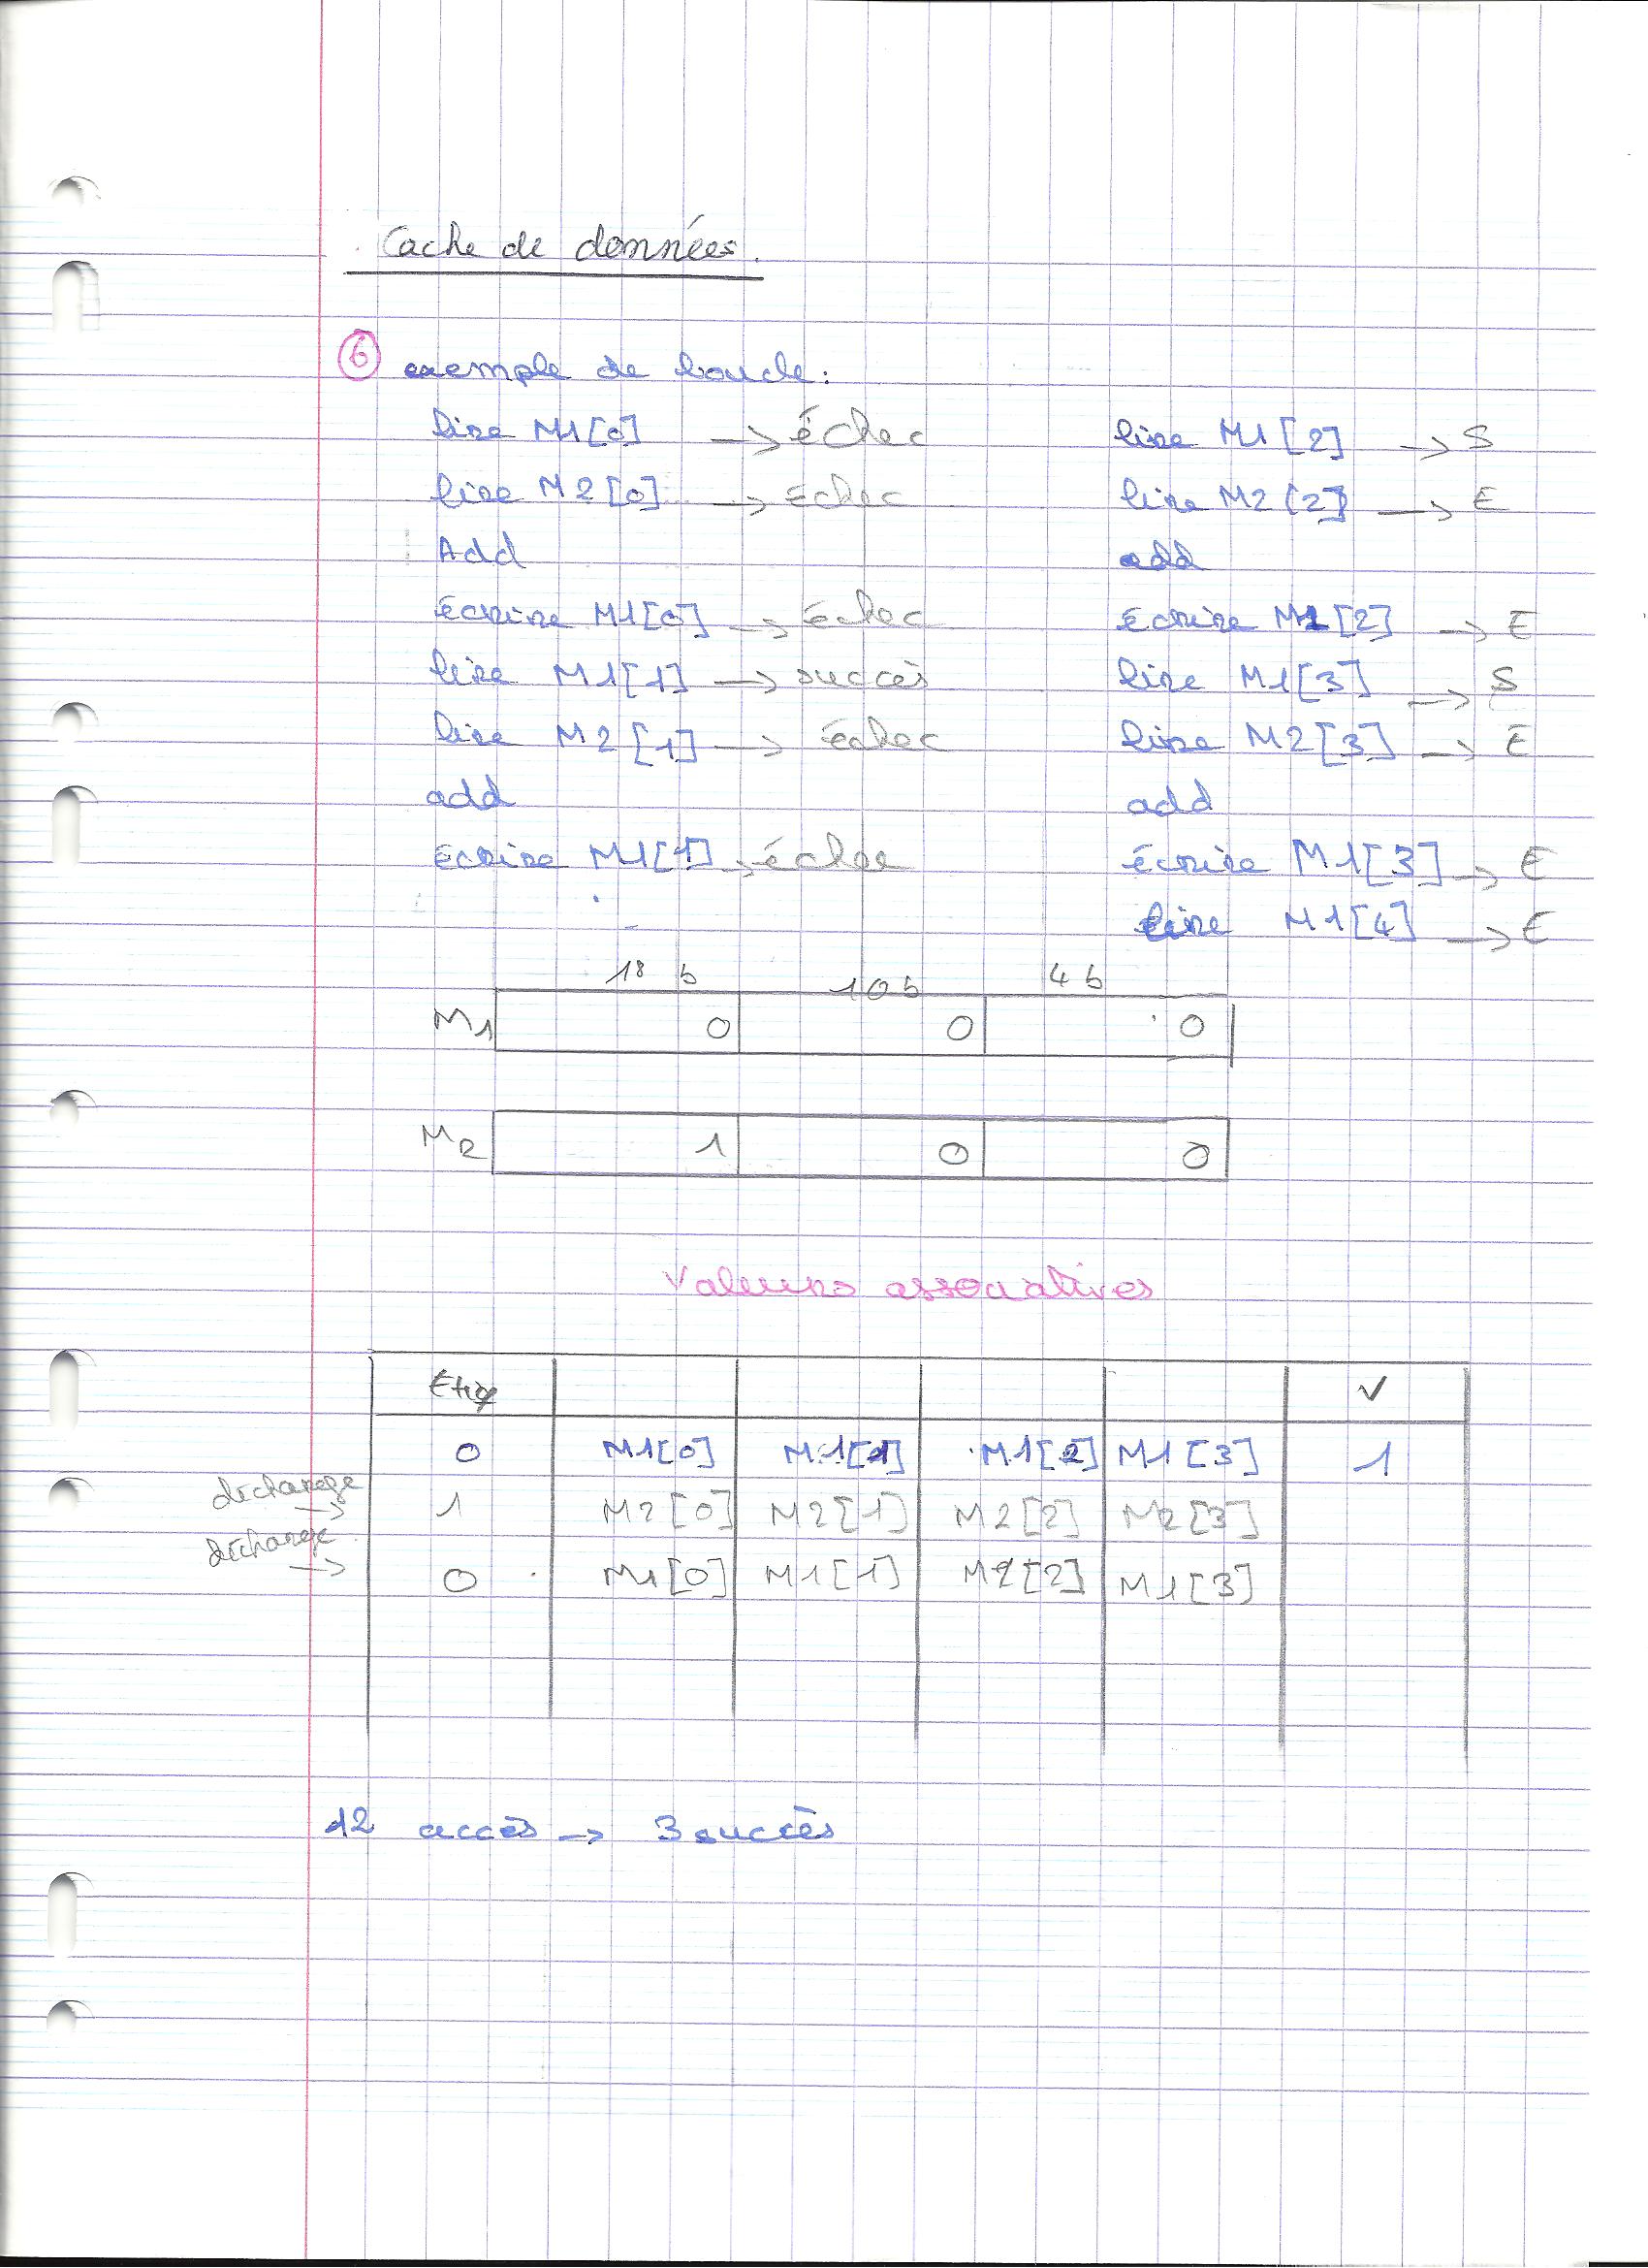 Cache de données.
6 exemple de boucle :
lire M1[0] → échec
lire M2[0] → échec
Add
écrire M1[0] → échec
lire M1[1] → succès
lire M2[1] → échec
add
écrire M1[1] → échec
lire M1[2] → S
lire M2[2] → E
add
écrire M1[2] → E
lire M1[3] → S
lire M2[3] → E
add
écrire M1[3] → E
lire M1[4] → E
18 b 10 b 4 b
M1 0 0 0
M2 1 0 0
Valeurs associatives
Etiq V
0 M1[0] M1[1] M1[2] M1[3] 1
décharge → 1 M2[0] M2[1] M2[2] M2[3]
décharge → 0 M1[0] M1[1] M1[2] M1[3]
12 accès → 3 succès